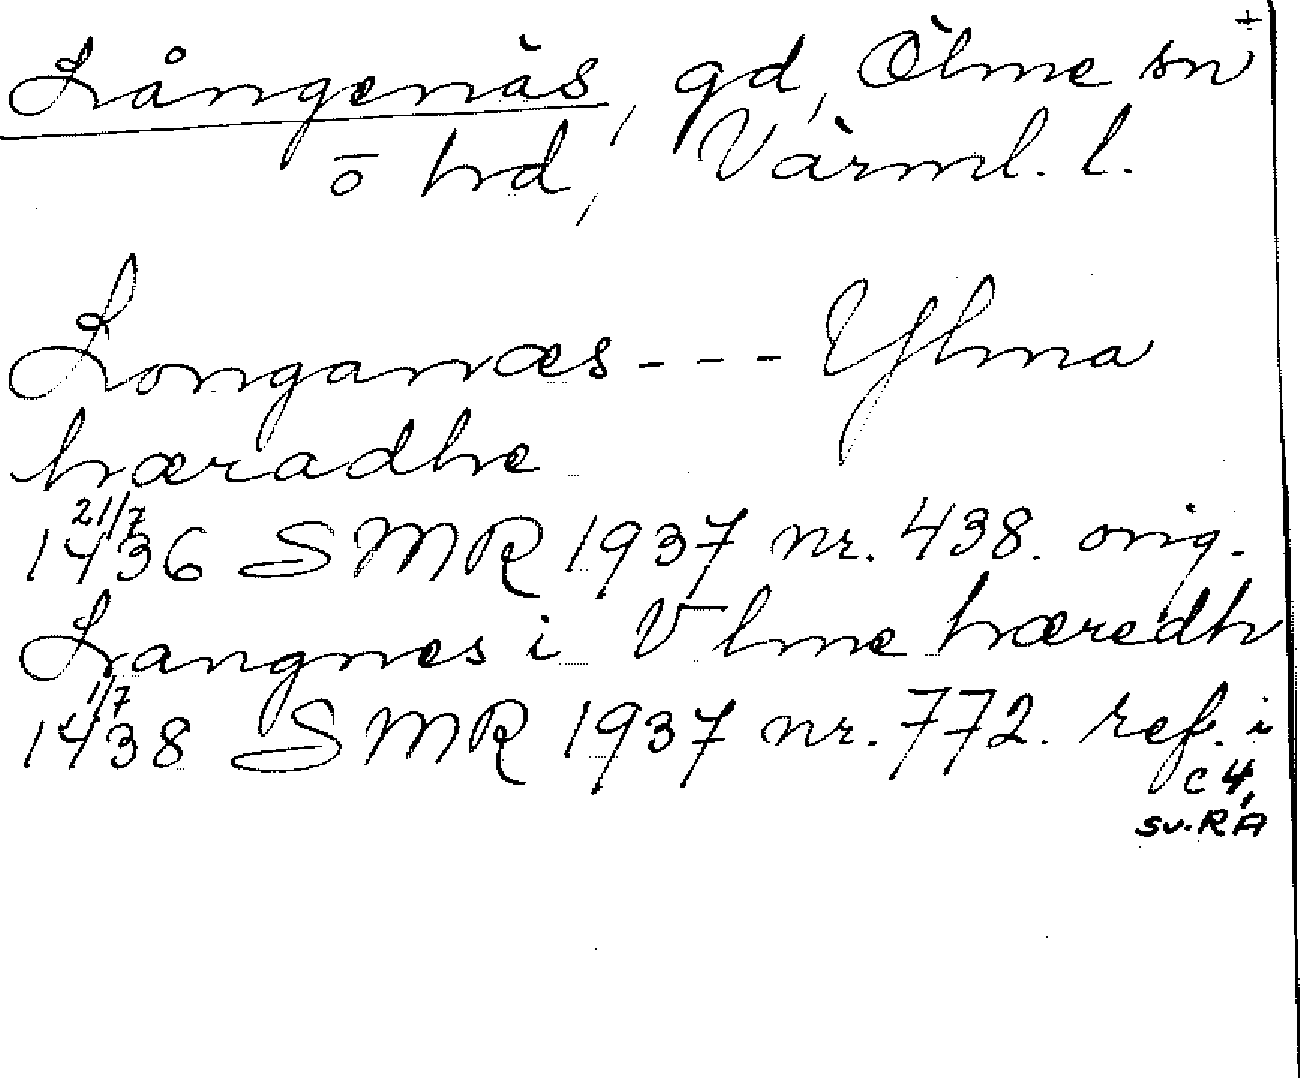 +
Långenäs, gd, Ölme sn
o hd, Värml. l.
Longanæs - - - Ylma
hæradhe
21/7
1436 SMR 1937 nr. 438. orig.
Langnes i Vlme hæredh
1/7
1438 SMR 1937 nr. 772. ref. i
C 4,
sv. RA